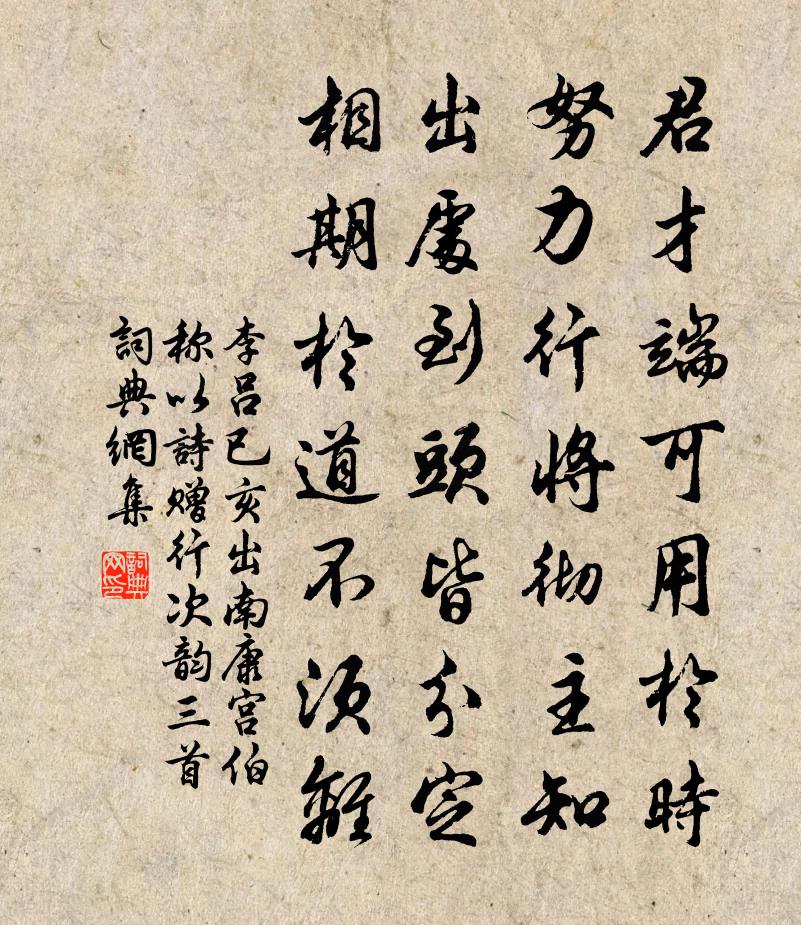 君才端可用於時
努力行將彻主知
出處到頭皆分定
相期於道不須離
李呂已亥出南康宫伯
称以詩赠行次韵三首
詞典網集
詞典網印